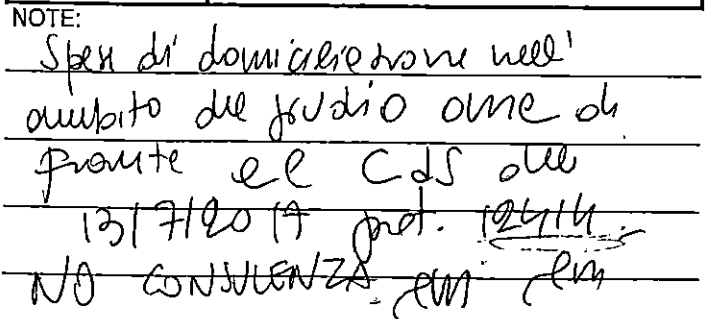 NOTE:
Spese di domiciliazione nell'
ambito del giudizio anche di
fronte al CdS del
13/7/2017 prot. 12414.
NO CONSULENZA.